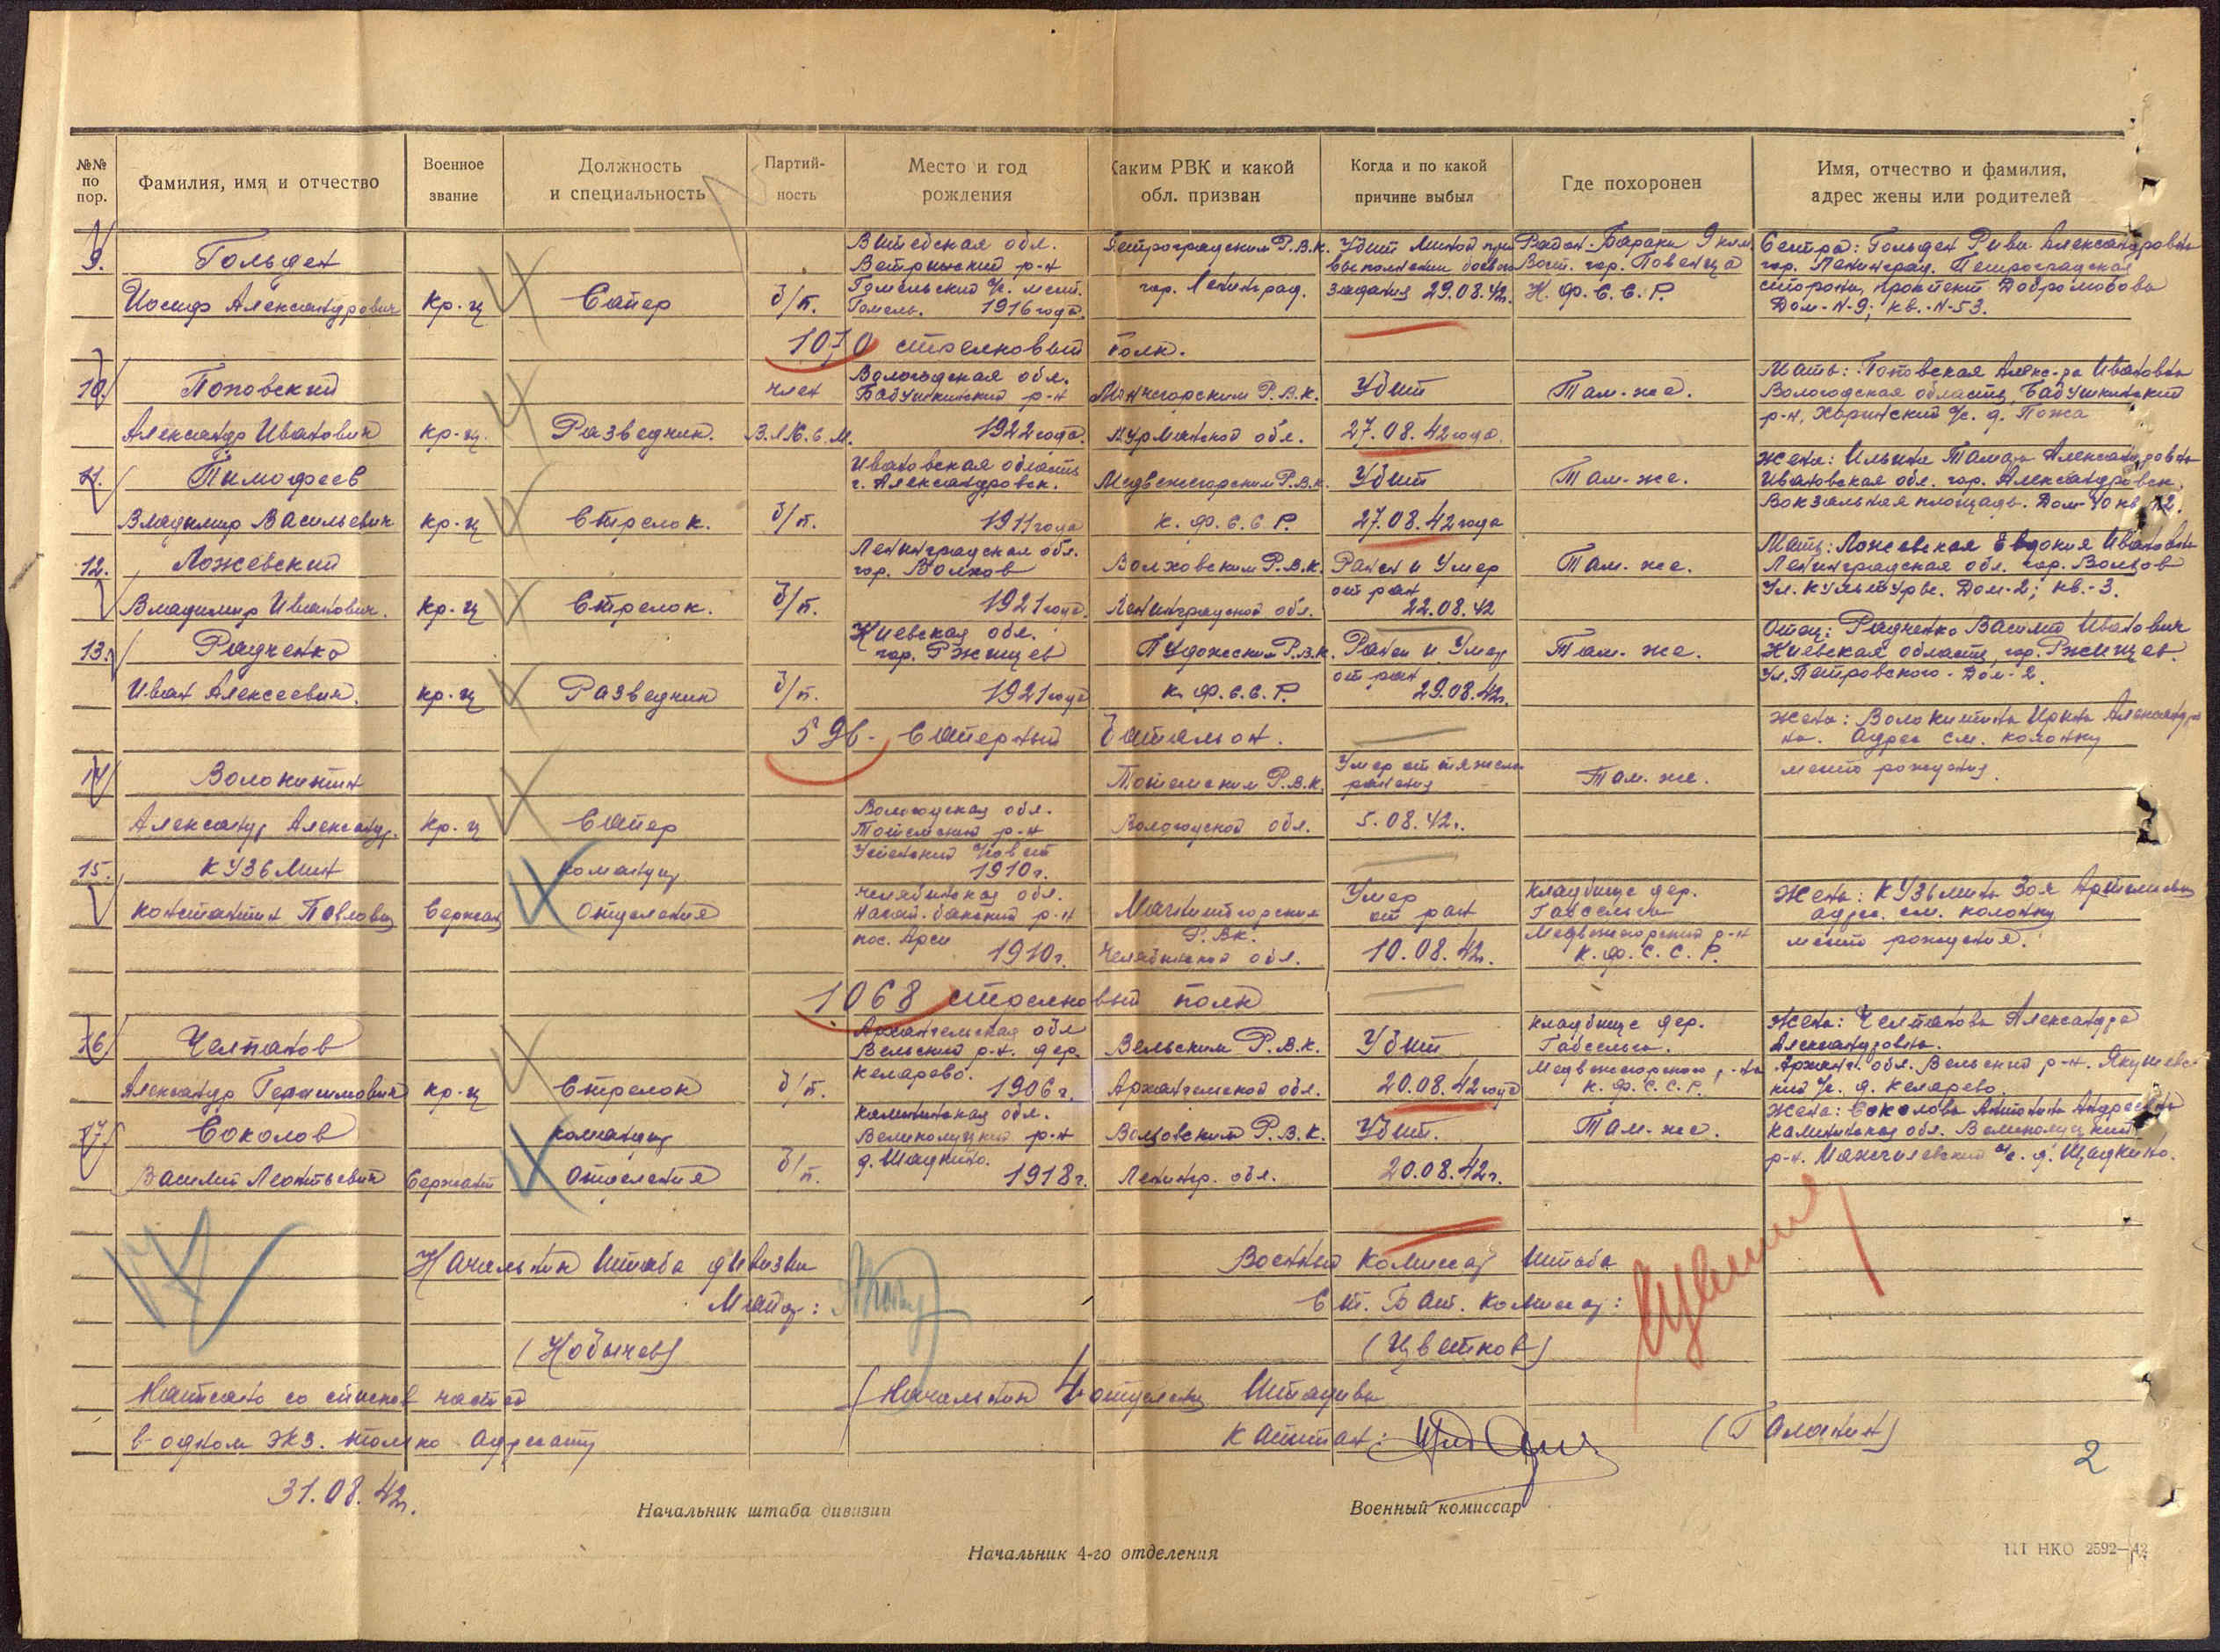 №№ по пор.
Фамилия, имя и отчество
Военное звание
Должность и специальность
Партийность
Место и год рождения
Каким РВК и какой обл. призван
Когда и по какой причине выбыл
Где похоронен
Имя, отчество и фамилия, адрес жены или родителей
9. Гольден Иосиф Александрович
Кр-ц
Сапер
б/п.
Витебская обл.
Ветринский р-н
Гомельский с/с. мест.
Гомель. 1916 года.
Петроградским Р.В.К.
гор. Ленинград.
Убит миной при
выполнении боевого
задания 29.08.42г.
Бараки 9 клм.
Вост. гор. Повенца
К. Ф. С. С. Р.
Сестра: Гольден Рива Александровна
гор. Ленинград. Петроградская
сторона, проспект Добролюбова
Дом-N-9; кв.-N-53.
1070 стрелковый полк.
10. Поповский
Александр Иванович
кр-ц.
Разведчик.
член
В.Л.К.С.М.
Вологодская обл.
Бабушкинский р-н
1922 года.
Мончегорским Р.В.К.
Мурманской обл.
Убит
27.08.42 года.
Там-же.
Мать: Поповская Алекс-ра Ивановна
Вологодская область, Бабушкинский
р-н, с/с. д. Пожа
11. Тимофеев
Владимир Васильевич
кр-ц
Стрелок.
б/п.
Ивановская область
г. Александровск.
1911 года
Медвежегорским Р.В.К.
К. Ф. С. С. Р.
Убит
27.08.42 года
Там-же.
Жена: Ильина Тамара Александровна
Ивановская обл. гор. Александровск.
Вокзальная площадь. Дом-40 кв. 12.
12. Ложевский
Владимир Иванович.
кр-ц
Стрелок.
б/п.
Ленинградская обл.
гор. Волхов
1921 года.
Волховским Р.В.К.
Ленинградской обл.
Ранен и умер
от ран
22.08.42
Там-же.
Мать: Ложевская Евдокия Ивановна
Ленинградская обл. гор. Волхов
Ул. Культуры. Дом-2; кв.-3.
13. Радченко
Иван Алексеевич.
кр-ц
Разведчик
б/п.
Киевская обл.
гор. Ржищев
1921 года
Пудожским Р.В.К.
К. Ф. С. С. Р.
Ранен и умер
от ран
29.08.42г.
Там-же.
Отец: Радченко Василий Иванович
Киевская область, гор. Ржищев.
Ул. Петровского-Дом-2.
596- Саперный батальон.
14. Волокитин
Александр Александр.
Кр-ц
Сапер
Вологодская обл.
Тотемский р-н
1910 г.
Тотемским Р.В.К.
Вологодской обл.
Умер от тяжелого
ранения
5.08.42г.
Там-же.
Жена: Волокитина Александров
на. Адрес см. колонку
место рождения.
15. Кузьмин
Константин Павлович
Сержант
Командир
отделения
Челябинская обл.
Нагай-бакский р-н
пос. Арси
1910г.
Магнитогорским
Р.ВК.
Челябинской обл.
Умер
от ран
10.08.42г.
кладбище дер.
Габсельга
Медвежегорский р-н
К. Ф. С. С. Р.
Жена: Кузьмина Зоя
адрес. см. колонку
место рождения.
1068 стрелковый полк
16 Челпанов
Александр Герасимович
кр-ц
Стрелок
б/п.
Архангельская обл
Вельский р-н. дер.
Келарево.
1906г.
Вельским Р.В.К.
Архангельской обл.
Убит
20.08.42 года
кладбище дер.
Габсельга.
Медвежегорского р-на
К. Ф. С. С. Р.
Жена: Челпанова Александра
Александровна.
Арханг. обл. Вельский р-н. Якушевс-
кий с/с. д. Келарево.
17. Соколов
Василий Леонтьевич
Сержант
командир
отделения
б/п.
Калининская обл.
Великолуцкий р-н
1918г.
Волховским Р.В.К.
Ленингр. обл.
Убит.
20.08.42г.
Там-же.
Жена: Соколова Антонина Андреевна
Калининская обл. Великолуцкий
17
Начальник штаба дивизии
Майор:
(Кобычев)
Военный комиссар штаба
Ст. Бат. комиссар:
(Цветков)
Написано со списков частей
в одном экз. только адресату
31.08.42г.
Начальник 4 отделения штадива
Капитан:
(Галанин)
2
Начальник штаба дивизии
Военный комиссар
Начальник 4-го отделения
НКО 2592—42